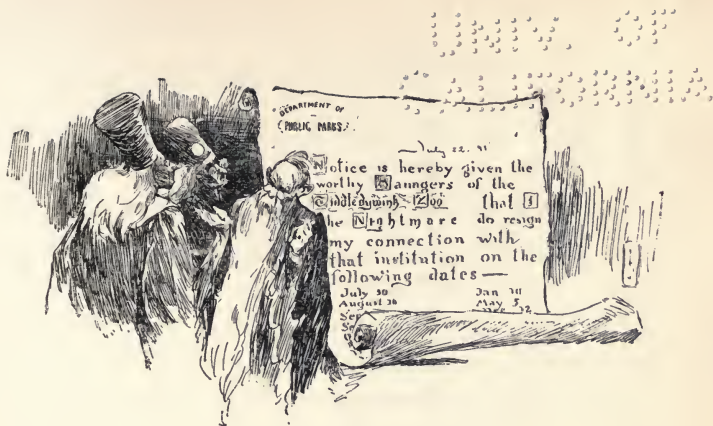 UNIV. OF
CALIFORNIA
DEPARTMENT OF
PUBLIC PARKS.
July 22. 91
Notice is hereby given the
worthy Manngers of the
Tiddledywink Zoo that I
he Nightmare do resign
my connection with
that institution on the
following dates—
July 30 Jan 30
August 30 May 5
Sep
Se